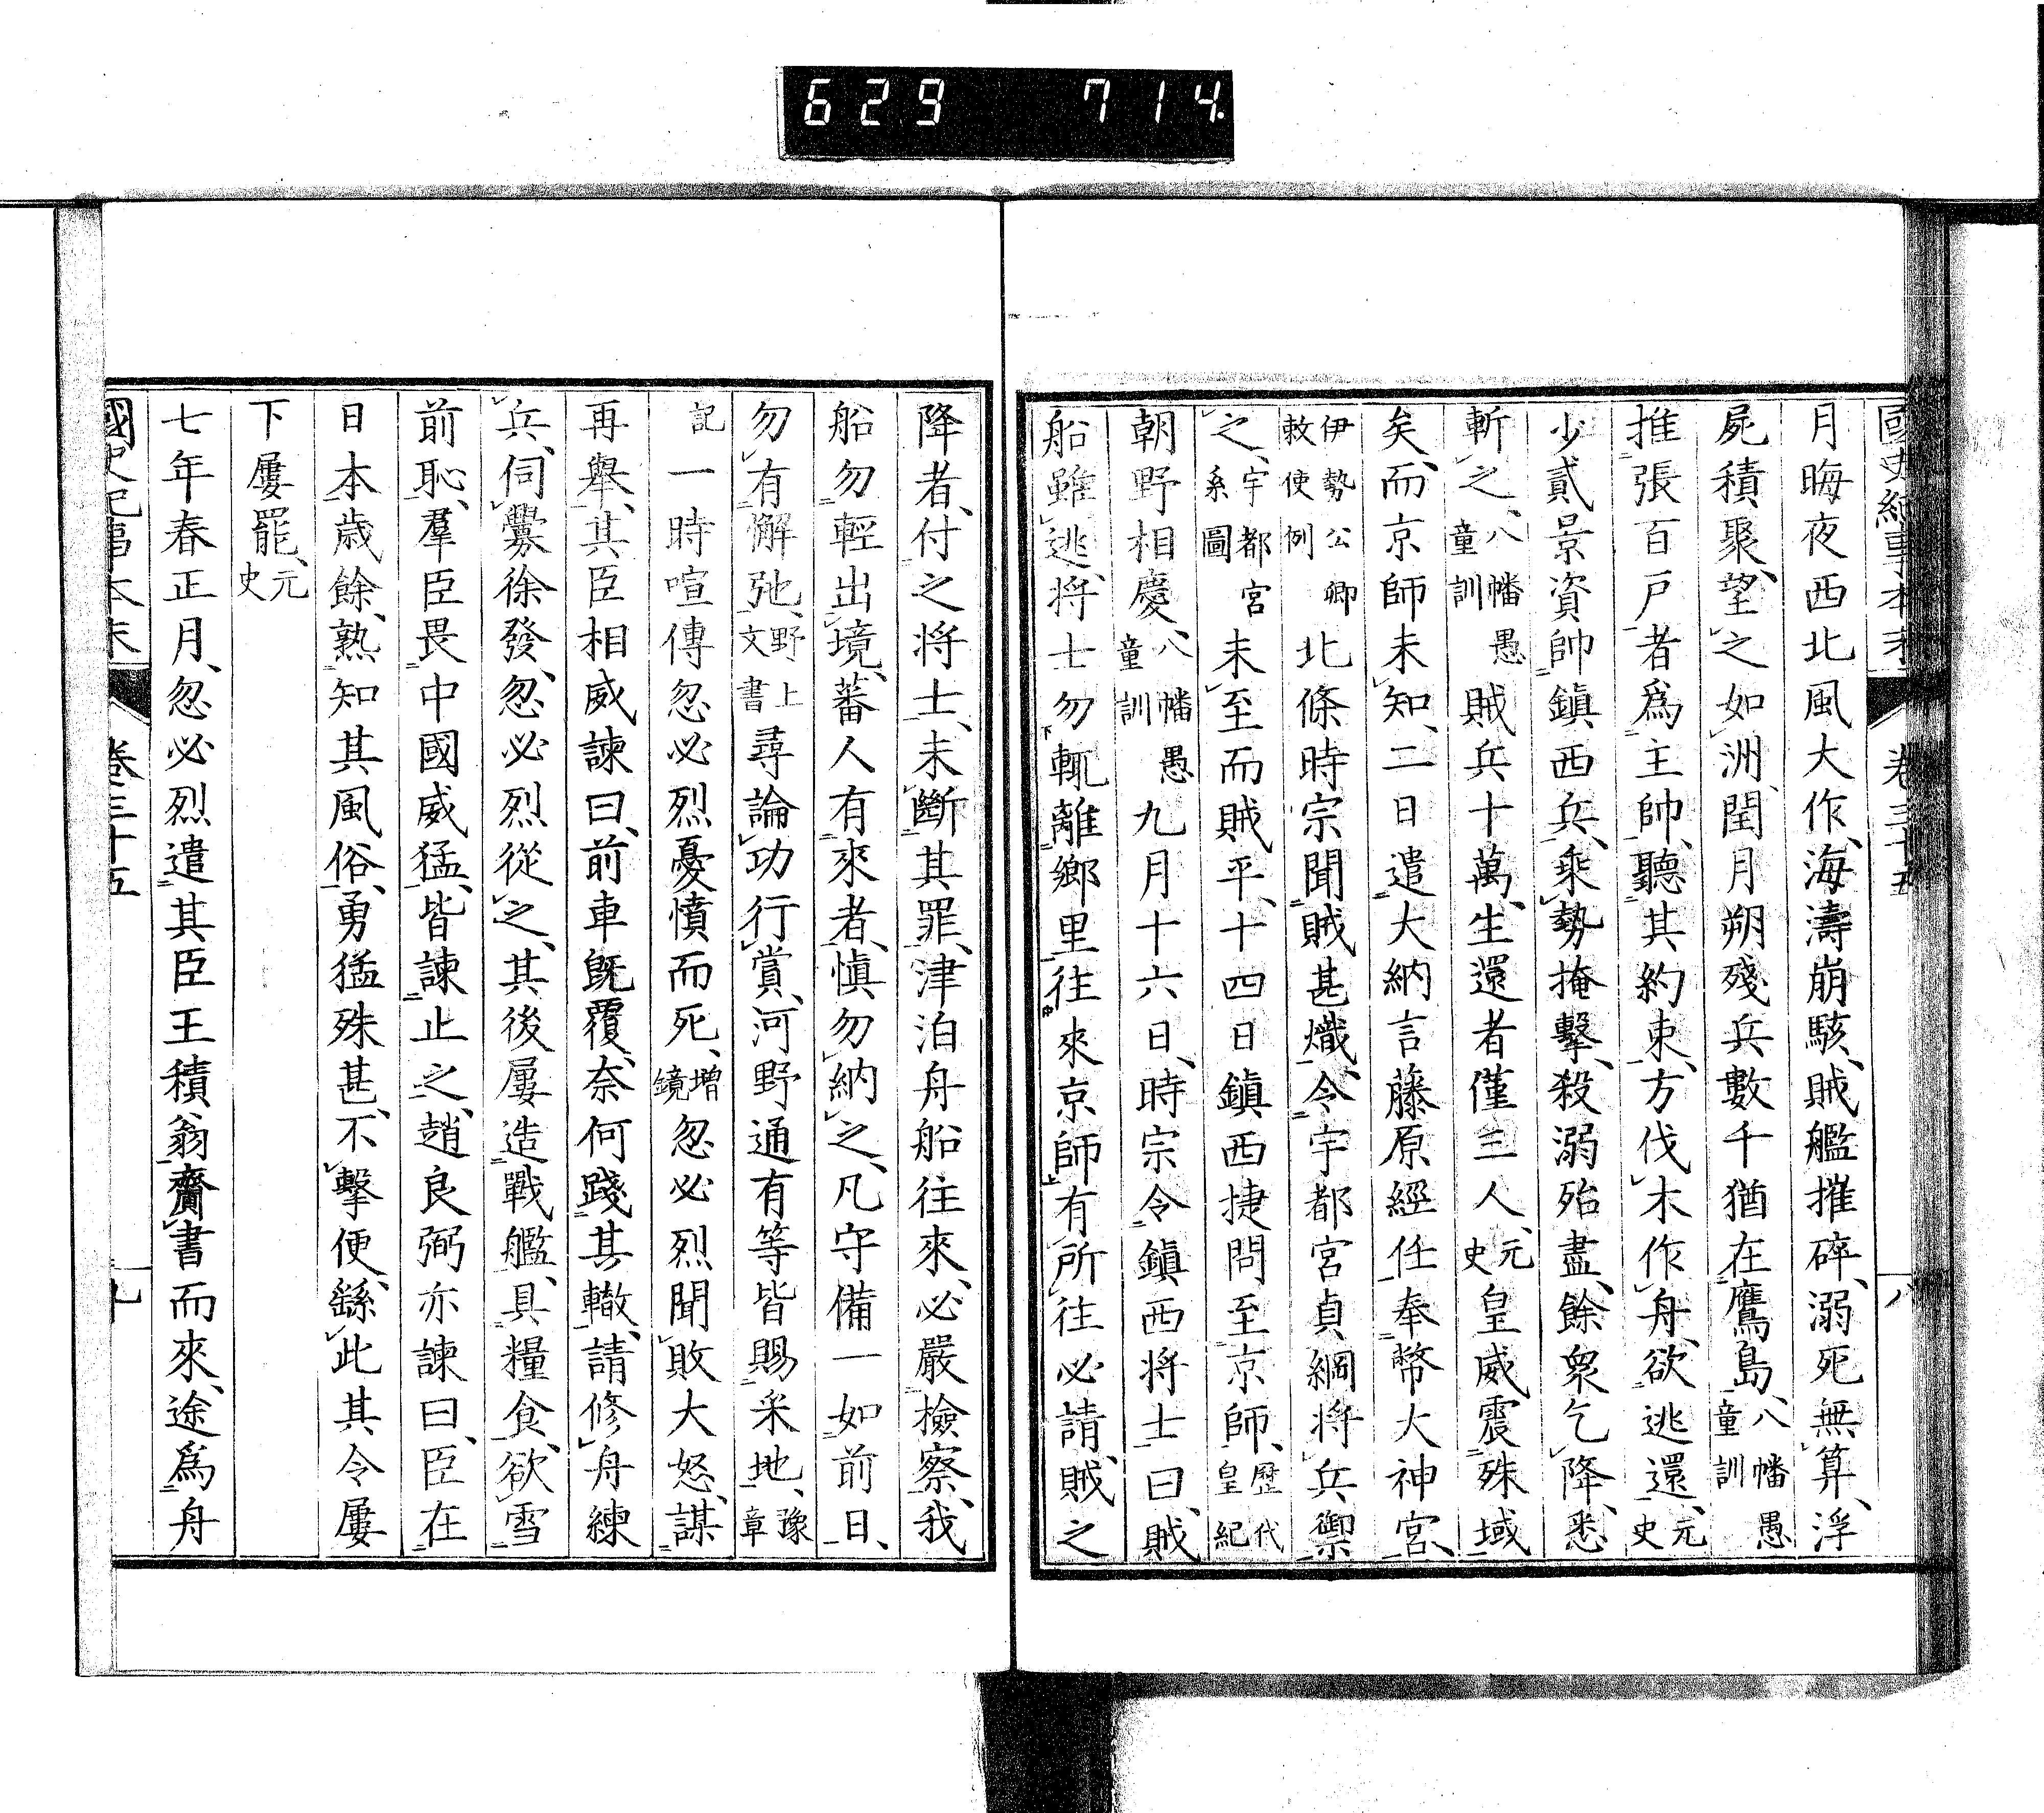 629 714.
國史紀事本末 卷三十五 八
月晦夜西北風大作、海濤崩駭、賊艦摧碎、溺死無算、浮
屍積聚、望之如洲、閏月朔殘兵數千猶在鷹島、八幡愚童訓
推張百戸者爲主帥、聽其約束、方伐木作舟、欲逃還、元史
少貳景資帥鎮西兵、乘勢掩擊、殺溺殆盡、餘衆乞降、悉
斬之、八幡愚童訓賊兵十萬、生還者僅三人、元史皇威震殊域
矣、而京師未知、二日遣大納言藤原經任奉幣大神宮、
伊勢公卿敕使例北條時宗聞賊甚熾、令宇都宮貞綱將兵禦
之、宇都宮系圖未至而賊平、十四日鎮西捷問至京師、歷代皇紀
朝野相慶、八幡愚童訓九月十六日、時宗令鎮西將士曰、賊
船雖逃、將士勿輒離鄉里往來京師有所往必請、賊之
降者、付之將士、未斷其罪、津泊舟船往來、必嚴檢察、我
船勿輕出境、蕃人有來者、愼勿納之、凡守備一如前日、
勿有懈弛、野上文書尋論功行賞、河野通有等皆賜采地、豫章
記一時喧傳忽必烈憂憤而死、增鏡忽必烈聞敗大怒、謀
再舉、其臣相威諫曰、前車既覆、奈何踐其轍、請修舟練
兵、伺釁徐發、忽必烈從之、其後屢造戰艦、具糧食、欲雪
前恥、羣臣畏中國威猛、皆諫止之、趙良弼亦諫曰、臣在
日本歲餘、熟知其風俗、勇猛殊甚、不擊便、繇此其令屢
下屢罷、元史
七年春正月、忽必烈遣其臣王積翁齎書而來、途爲舟
國史紀事本末 卷三十五 九